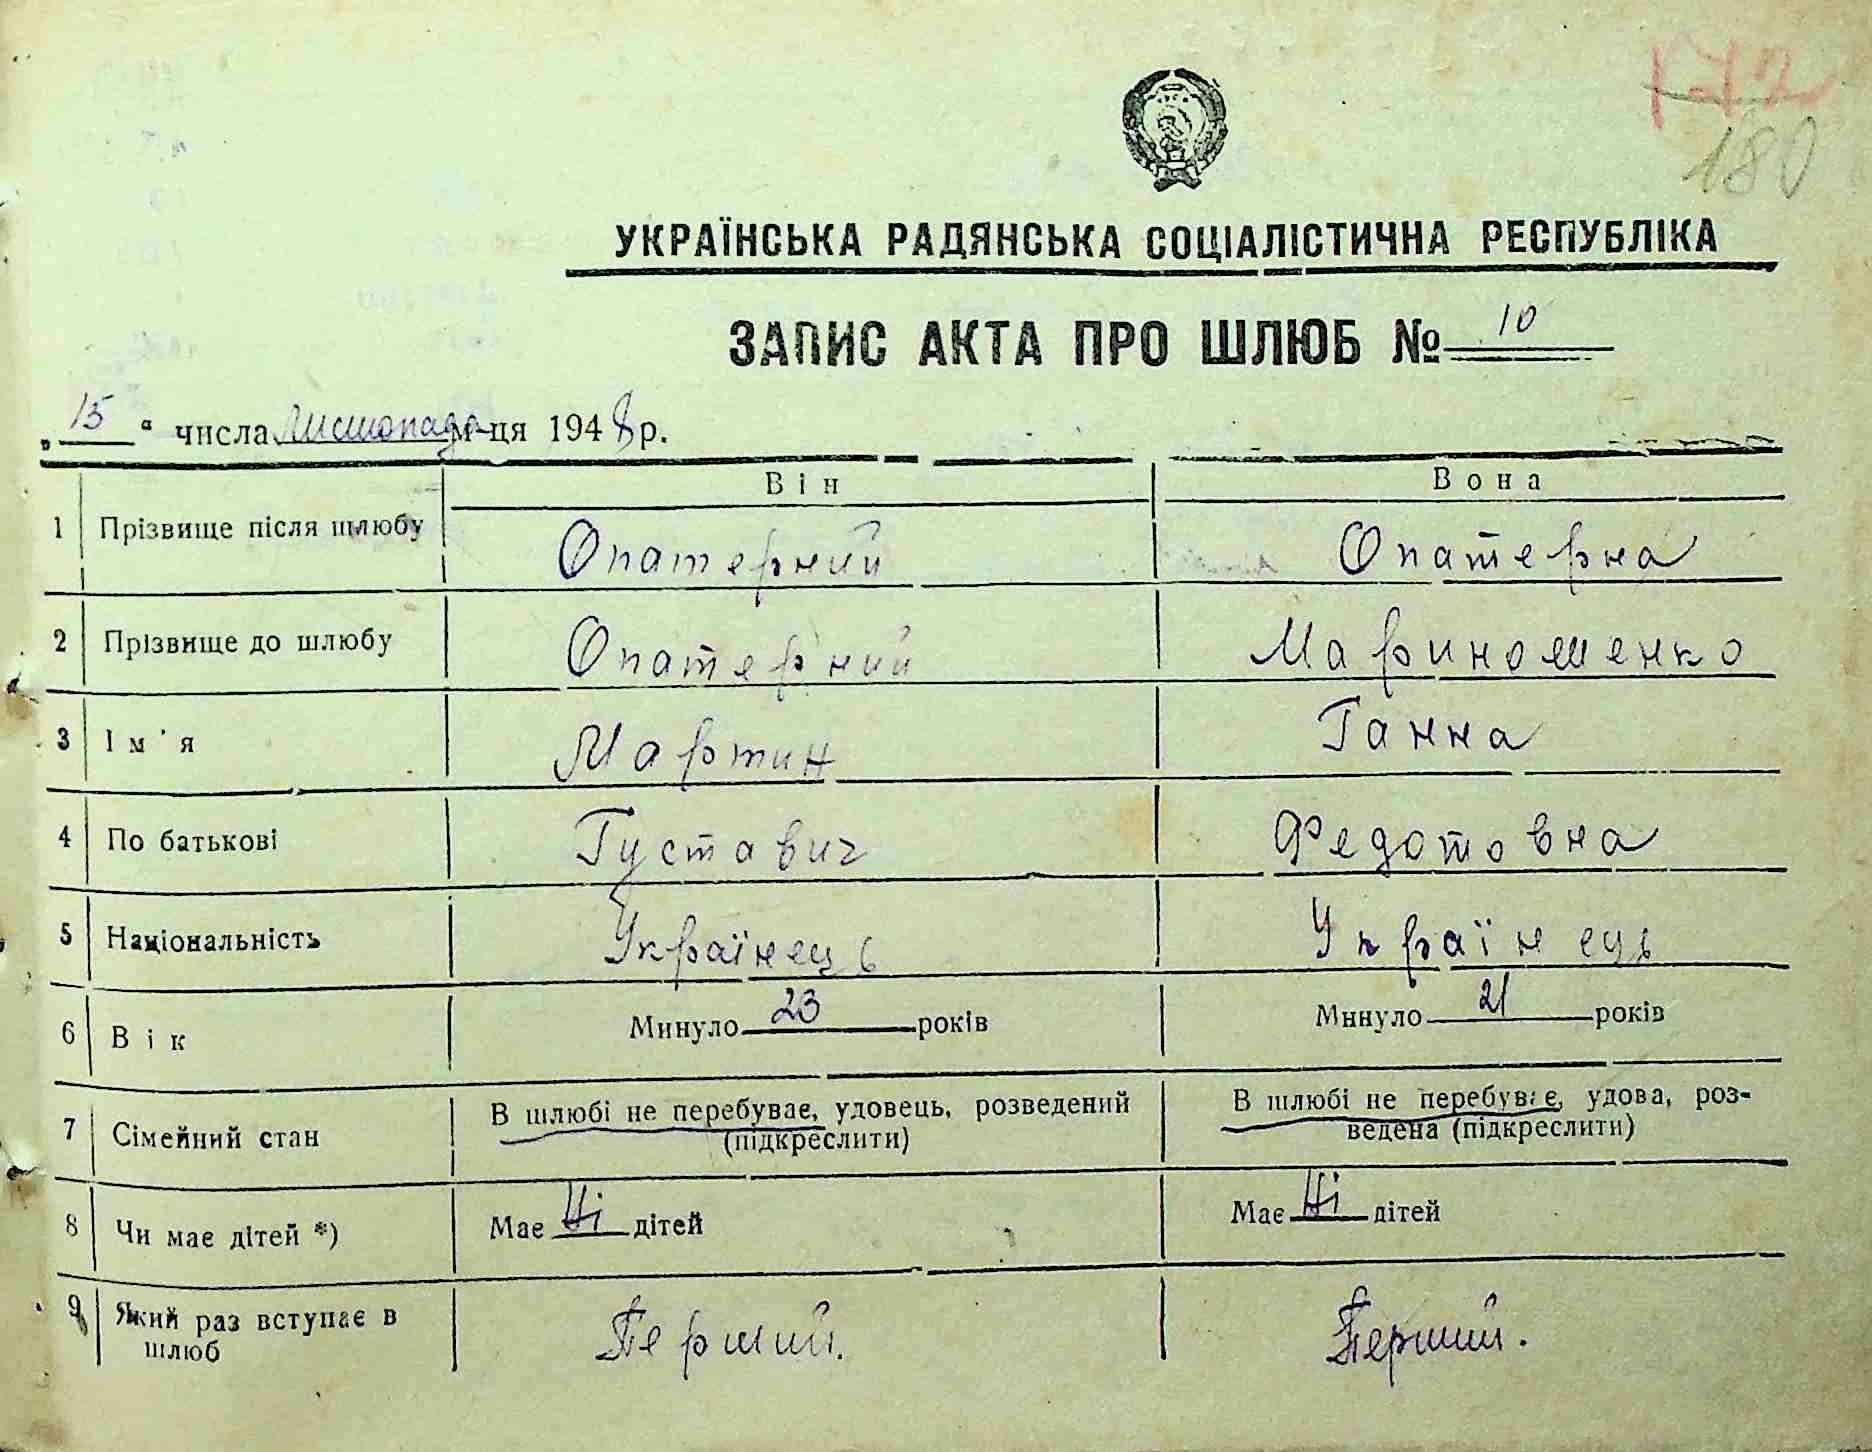 172
180
УКРАЇНСЬКА РАДЯНСЬКА СОЦІАЛІСТИЧНА РЕСПУБЛІКА
ЗАПИС АКТА ПРО ШЛЮБ № 10
„15“ числа Листопада м-ця 1948 р.
Він Вона
1 Прізвище після шлюбу Опатерний Опатерна
2 Прізвище до шлюбу Опатерний Мариношенко
3 Ім'я Мартин Ганна
4 По батькові Густавич Федотовна
5 Національність Українець Українець
6 Вік Минуло 23 років Минуло 21 років
7 Сімейний стан В шлюбі не перебуває, удовець, розведений (підкреслити) В шлюбі не перебуває, удова, роз-
ведена (підкреслити)
8 Чи має дітей *) Має Ні дітей Має Ні дітей
9 Який раз вступає в
шлюб Перший. Перший.